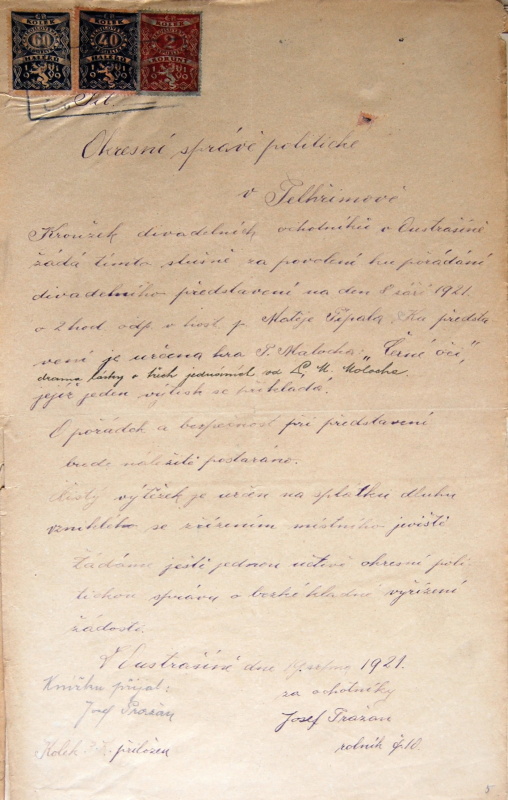 ČR
KOLEK
60
HALÉŘŮ
ČR
KOLEK
40
HALÉŘŮ
ČR
KOLEK
2
KORUNY
Okresní správě politické
v Pelhřimově
Kroužek divadelních ochotníků v Častrašíně
žádá tímto slušně za povolení ku pořádání
divadelního představení na den 8 září 1921.
o 2 hod odp. v host p. Matěje Típala. Ku předsta
vení je určena hra P. Malocha: „Černé oči",
drama lásky o třech jednáních od L. M. Malocha
jejíž jeden výtisk se přikládá.
O pořádek a bezpečnost při představení
bude náležitě postaráno.
Čistý výtěžek je určen na splátku dluhu
vzniklého se zřízením místního jeviště
Žádáme ještě jednou uctivě okresní poli
tickou správu o vyřízení
žádosti.
V dne srpna 1921.
Knížku přijal:
za ochotníky
Josef Pražan
Josef Pražan
Kolek přiložen
rolník